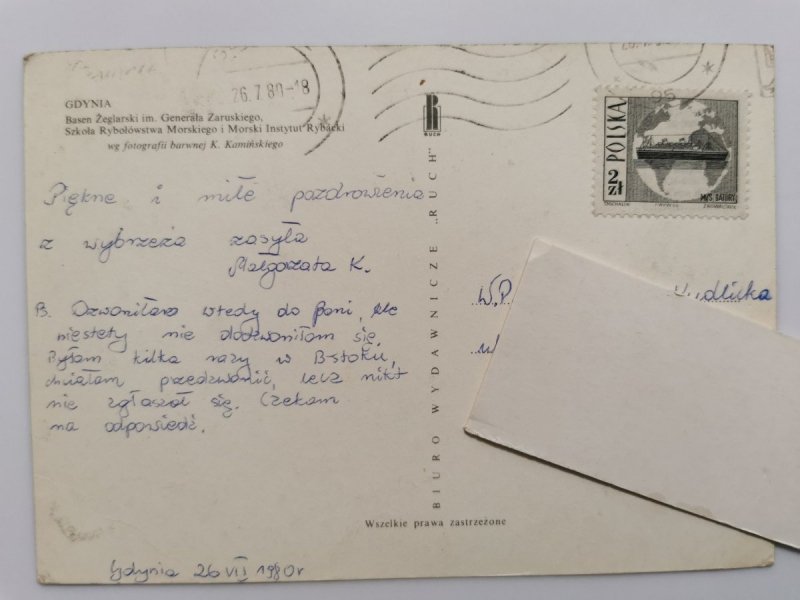 26.7.80-18
GDYNIA
Basen Żeglarski im. Generała Zaruskiego,
Szkoła Rybołówstwa Morskiego i Morski Instytut Rybacki
wg fotografii barwnej K. Kamińskiego
Piękne i miłe pozdrowienia
z wybrzeża zasyła
Małgorzata K.
Dzwoniłam wtedy do Pani, ale
niestety nie dodzwoniłam się.
Byłam kilka razy w B-stoku,
chciałam przedzwonić, lecz nikt
nie zgłaszał się. Czekam
na odpowiedź.
Gdynia 26 VII 1980r
RUCH
BIURO WYDAWNICZE „RUCH"
Wszelkie prawa zastrzeżone
95
POLSKA
2 zł
M/S BATORY
W.P.